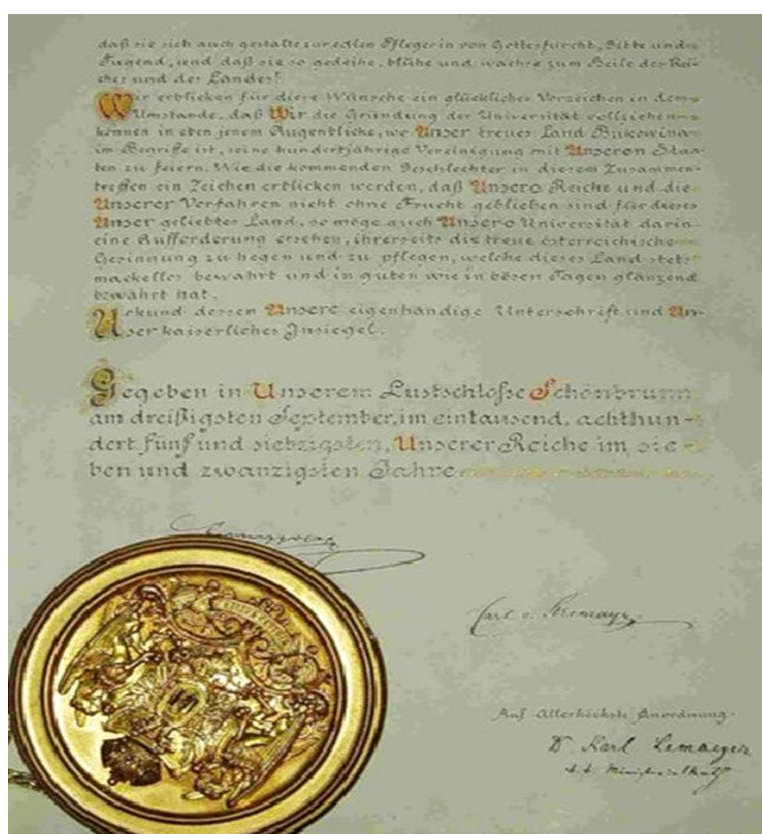 daß sie sich auch gestalte zur edlen Pflegerin von Gottesfurcht, Sitte und
Tugend, und daß sie so gedeihe, blühe und wachse zum Heile des Rei-
ches und des Landes!
Wir erblicken für diese Wünsche ein glückliches Vorzeichen in dem
Umstande, daß Wir die Gründung der Universität vollziehen
können in eben jenem Augenblicke, wo Unser treues Land Bukowina
im Begriffe ist, seine hundertjährige Vereinigung mit Unseren Staa-
ten zu feiern. Wie die kommenden Geschlechter in diesem Zusammen-
treffen ein Zeichen erblicken werden, daß Unsere Reiche und die
Unserer Vorfahren nicht ohne Frucht geblieben sind für dieses
Unser geliebtes Land, so möge auch Unsere Universität darin
eine Aufforderung ersehen, ihrerseits die treue österreichische
Gesinnung zu hegen und zu pflegen, welche dieses Land stets
mackellos bewahrt und in guten wie in bösen Tagen glänzend
bewährt hat.
Urkund dessen Unsere eigenhändige Unterschrift und Un-
ser kaiserliches Insiegel.
Gegeben in Unserem Lustschloße Schönbrunn
am dreißigsten September, im eintausend, achthun-
dert fünf und siebzigsten, Unserer Reiche im sie-
ben und zwanzigsten Jahre
Carl v. Stremayr
Auf Allerhöchste Anordnung:
Dr Karl Lemayer
k.k. Ministerialrath